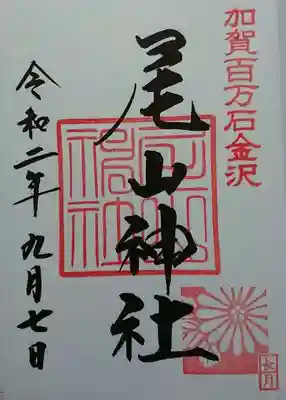 加賀百万石金沢
尾山神社
令和二年九月七日
長月